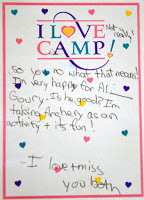 I LOVE
Not really!
CAMP!
so you know what that means!
I'm very happy for Al
Goury. Is he good? I'm
taking Archery as an
activity + its fun!
- I love + miss
you both